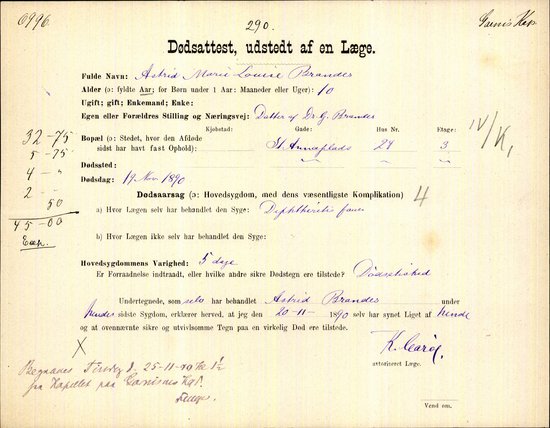 0996.
290.
Garnis Kap
Dødsattest, udstedt af en Læge.
Fulde Navn: Astrid Marie Louise Brandes
Alder (ɔ: fyldte Aar; for Børn under 1 Aar: Maaneder eller Uger): 10
Ugift; gift; Enkemand; Enke:
Egen eller Forældres Stilling og Næringsvej: Datter af Dr. G. Brandes
Kjøbstad: Gade: Hus Nr. Etage:
Bopæl (ɔ: Stedet, hvor den Afdøde sidst har havt fast Ophold): St. Annæplads 24 3
Dødssted: " "
Dødsdag: 19 Nov. 1890
32-75
5-75
4 - "
2 - "
50
45-00
Dødsaarsag (ɔ: Hovedsygdom, med dens væsentligste Komplikation) 4
a) Hvor Lægen selv har behandlet den Syge: Diphtheritis fauc
b) Hvor Lægen ikke selv har behandlet den Syge:
Hovedsygdommens Varighed: 5 dage
Er Forraadnelse indtraadt, eller hvilke andre sikre Dødstegn ere tilstede? Dødsstivhed
Undertegnede, som selv har behandlet Astrid Brandes under
hendes sidste Sygdom, erklærer herved, at jeg den 20-11-1890 selv har synet Liget af hende
og at ovennævnte sikre og utvivlsomme Tegn paa en virkelig Død ere tilstede.
X
K.
autoriseret Læge.
Begraves Tirsdag d. 25-11-90 Kl 1½
fra Kapellet paa Garnisons Kgd.
Vend om.